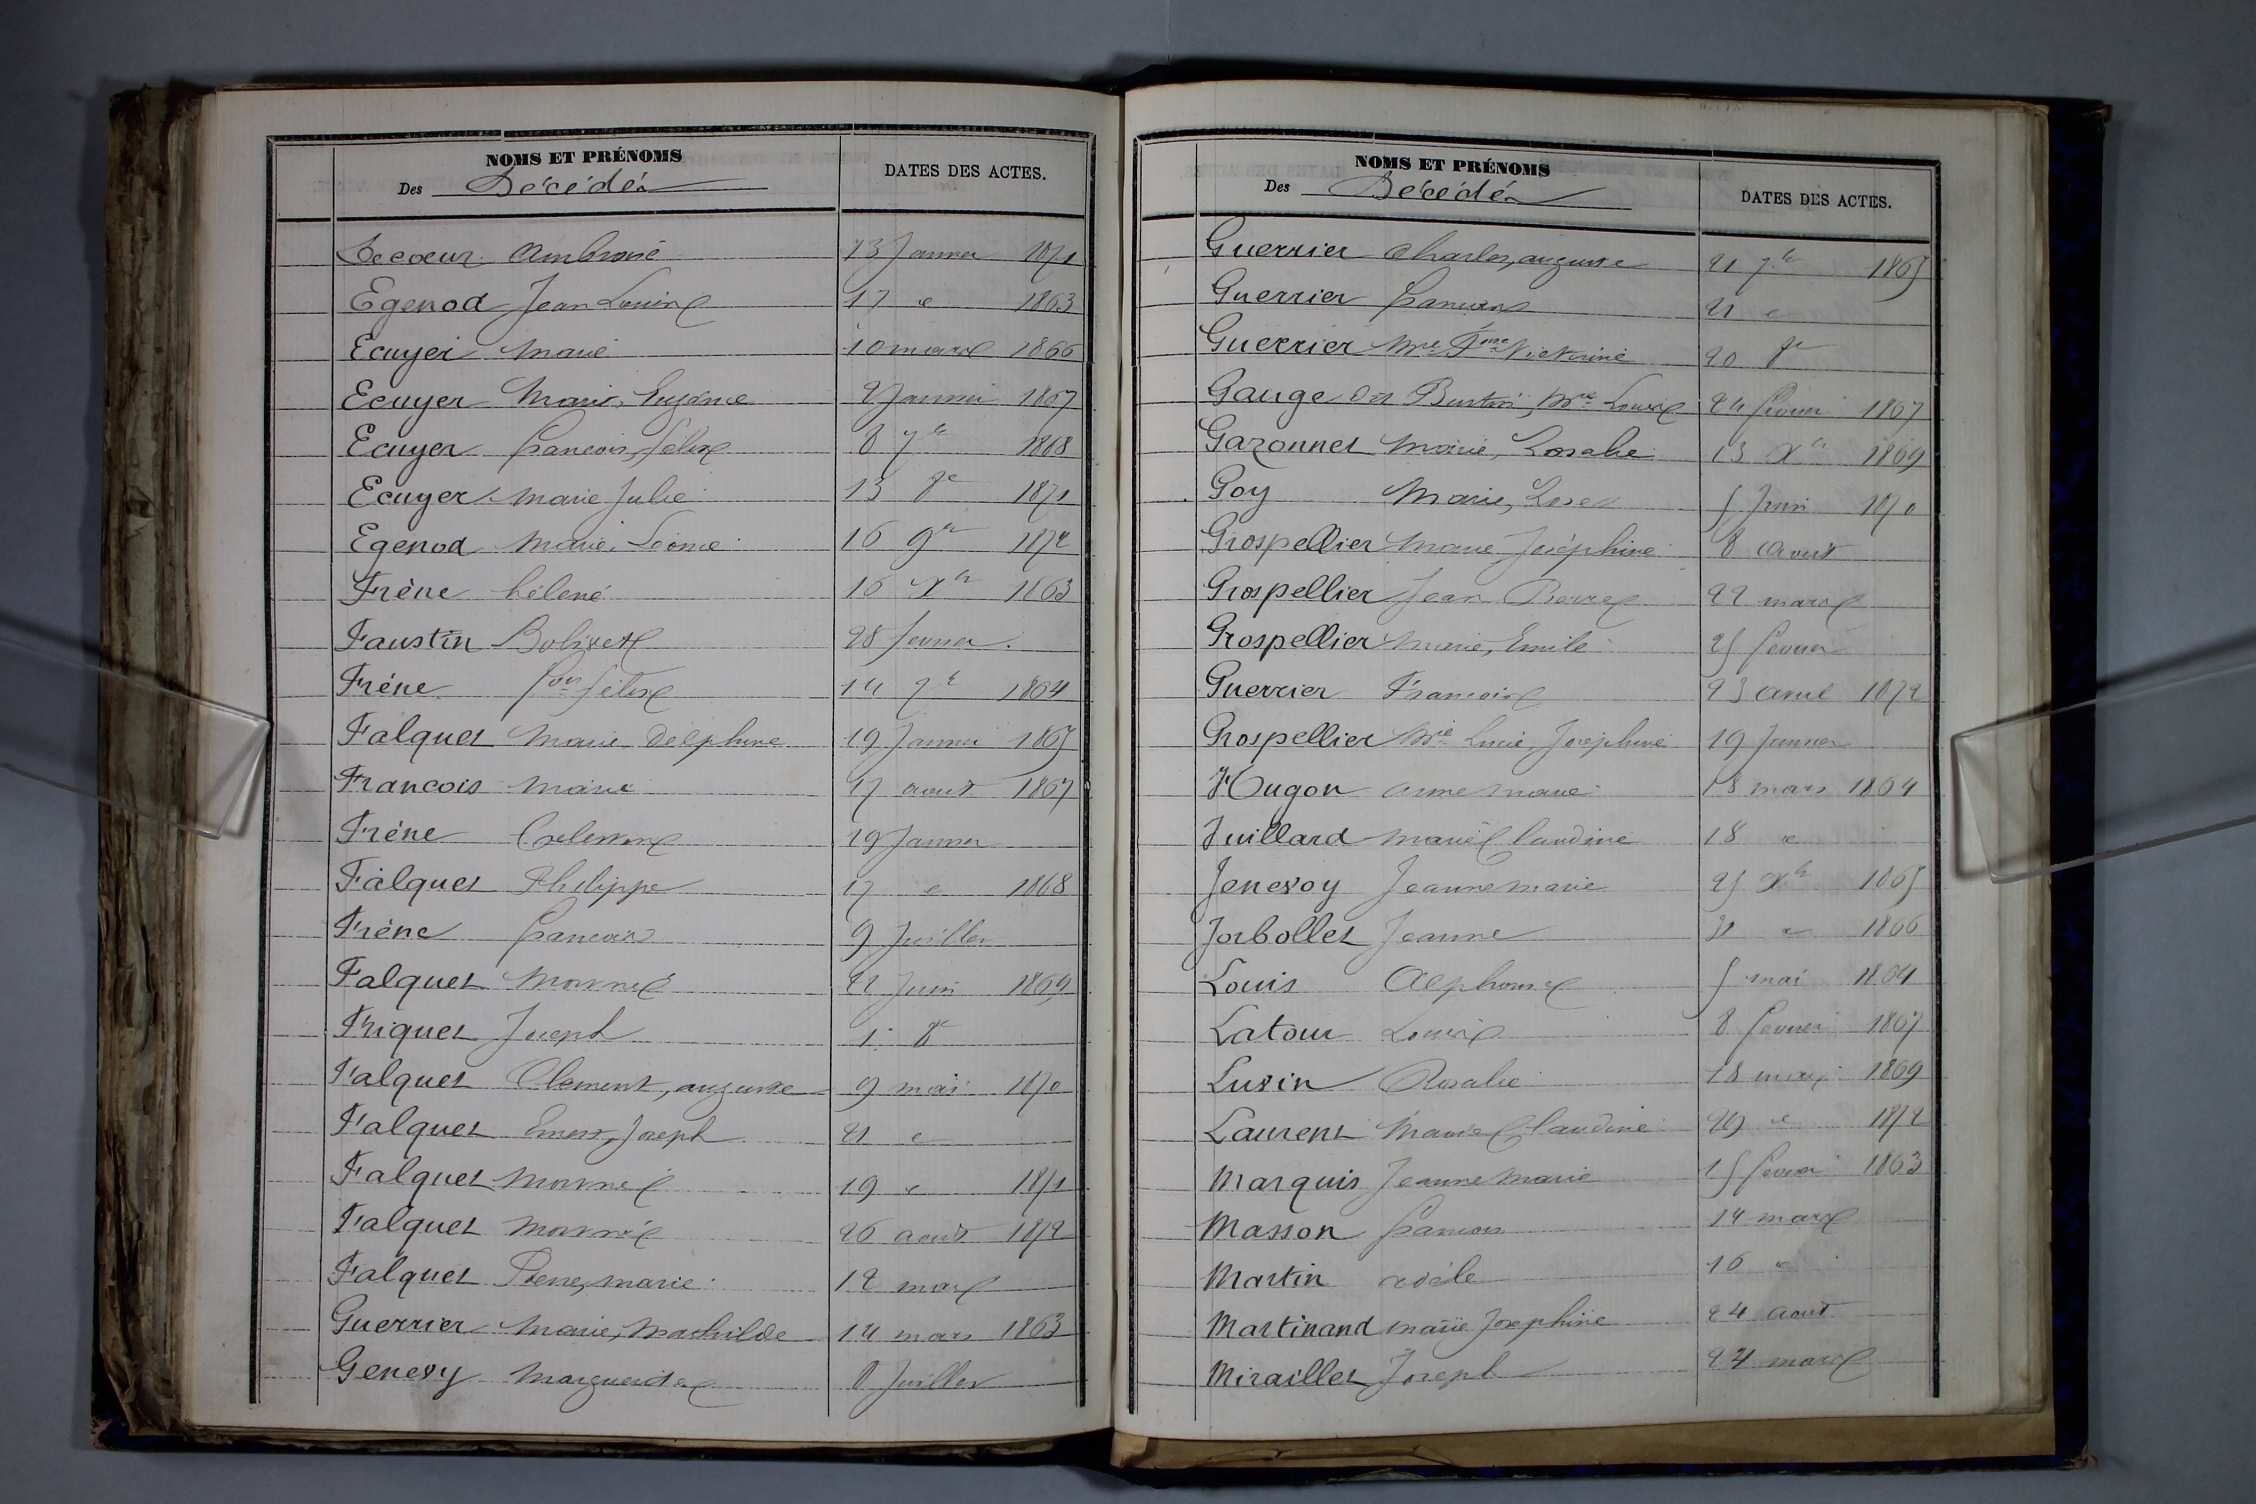 NOMS ET PRÉNOMS
Des Décédés
DATES DES ACTES.
Decoeur Ambroise 13 Janvier 1871
Egenod Jean Louis 17 "  1863
Ecuyer Marie 10 mars 1866
Ecuyer Marie, Eugénie 2 Janvier 1867
Ecuyer francois, félix 8 7bre 1868
Ecuyer Marie Julie 13 8bre 1871
Egenod Marie, Léonie 16 9bre 1872
Frène hélène 16 Xbre 1863
Faustin 28 fevrier
Fréne fois félix 14 7bre 1864
Falquet Marie Delphine 19 Janvier 1865
Francois Marie 17 aout 1867
Fréne Celestine 19 Janvier
Falquet Philippe 17 " 1868
Fréne francois 9 Juillet
Falquet Mort né 22 Juin 1869
Friquet Joseph 1 8bre
Falquet Clement, auguste 9 mai 1870
Falquet Ernest, Joseph 21 "
Falquet Mort né 19 " 1871
Falquet Mort né 26 aout 1872
Falquet Pierre, marie 12 mars
Guerrier Marie, Mathilde 14 mars 1863
Genevy Marguerite 8 Juillet
NOMS ET PRÉNOMS
Des Décédés
DATES DES ACTES.
Guerrier Charles, auguste 21 7bre 1865
Guerrier francois 21 "
Guerrier Mie Fine Victorine 20 8bre
Gauge dit Mie Louise 24 fevrier 1867
Gazonnet Marie, Rosalie 13 Xbre 1869
Goy Marie, Rose 5 Juin 1870
Grospellier Marie Joséphine 8 Aout
Grospellier Jean Pierre 22 mars
Grospellier Marie, Emilie 25 fevrier
Guerrier Francois 23 avril 1872
Grospellier Mie Lucie, Joséphine 19 Janvier
Hugon anne marie 18 mars 1864
Juillard marie Claudine 18 "
Jenevoy Jeanne marie 25 Xbre 1865
Jorbollet Jeanne 31 " 1866
Louis Alphonse 5 mai 1864
Latour Louis 8 fevrier 1867
Luvin Rosalie 18 mars 1869
Laurent Marie Claudine 29 " 1872
Marquis Jeanne Marie 15 fevrier 1863
Masson francois 14 mars
Martin adèle 16 "
Martinand marie Josephine 24 aout
Miraillet Joseph 24 mars